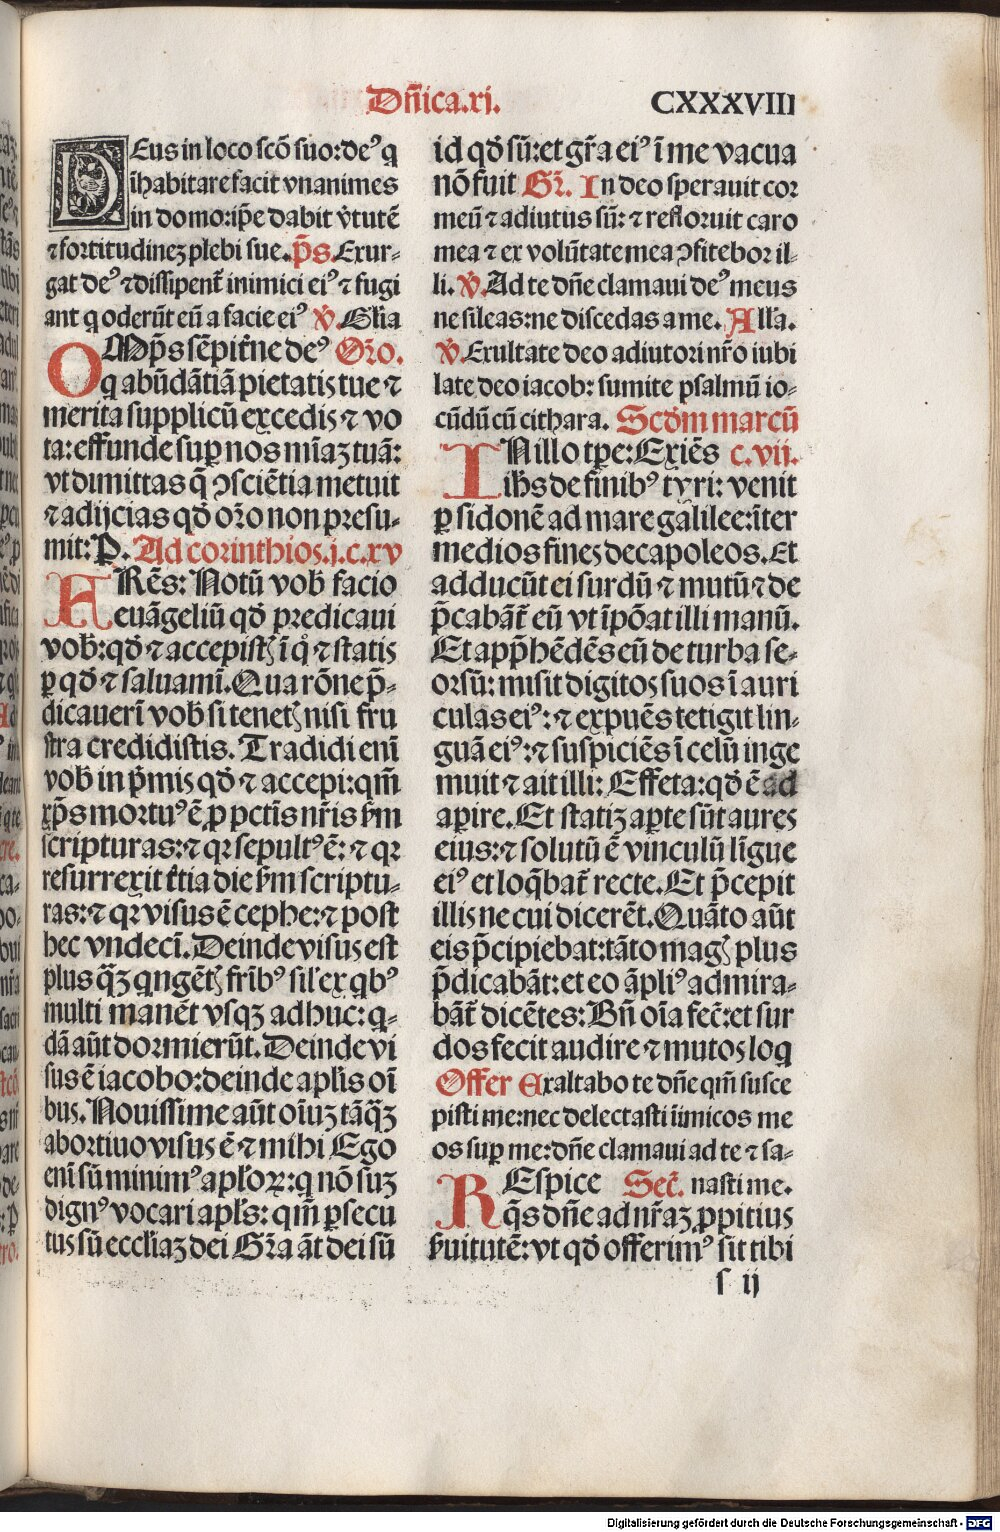 Dn̄ica.xi.
CXXXVIII
DEus in loco scō suo: deꝰ q
īhabitare facit vnanimes
in domo: ip̄e dabit v̓tutē
⁊ fortitudinez plebi sue. p̄s. Exur-
gat deꝰ ⁊ dissipent̄ inimici eiꝰ ⁊ fugi
ant q oderūt eū a facie eiꝰ v̓. Gl̓ia
OMp̄s sēpit̄ne deꝰ Or̄o.
q abūdātiā pietatis tue ⁊
merita supplicū excedis ⁊ vo
ta: effunde suꝑ nos mīaz tuā:
vt dimittas q̄ ꝯsciētia metuit
⁊ adijcias qđ or̄o non presu-
mit: P. Ad corinthios.j.c.xv
FRēs: Notū vob̄ facio
euāgeliū qđ predicaui
vob̄: qđ ⁊ accepistꝭ ī q̊ ⁊ statis
ꝑ qđ ⁊ saluamī. Qua rōne p̄-
dicauerī vob̄ si tenetꝭ nisi fru
stra credidistis. Tradidi enī
vob̄ in p̄mis qđ ⁊ accepi: qm̄
xp̄s mortuꝰ ē ꝓ pctīs nr̄is ẜm
scripturas: ⁊ qꝛ sepultꝰ ē: ⁊ qꝛ
resurrexit t̄tia die ẜm scriptu-
ras: ⁊ qꝛ visus ē cephe: ⁊ post
hec vndecī. Deinde visus est
plus q̄ꝫ qngētꝭ fr̄ibꝰ sil̓ ex qbꝰ
multi manēt vsqꝫ adhuc: q-
dā aūt dormierūt. Deinde vi
sus ē iacobo: deinde apl̓is oī
bus. Nouissime aūt oīuz tāq̄ꝫ
abortiuo visus ē ⁊ mihi Ego
enī sū minimꝰ apl̓oꝝ: q nō suz
dignꝰ vocari apl̓s: qm̄ ꝑsecu
tus sū eccl̓iaz dei Gr̄a āt dei sū
id qđ sū: et gr̄a eiꝰ ī me vacua
nō fuit Gr̄. In deo sperauit cor
meū ⁊ adiutus sū: ⁊ refloruit caro
mea ⁊ ex volūtate mea ꝯfitebor il-
li. v̓. Ad te dn̄e clamaui deꝰ meus
ne sileas: ne discedas a me. All̓a.
v̓. Exultate deo adiutori nr̄o iubi
late deo iacob: sumite psalmū io-
cūdū cū cithara. Scđm marcū
IN illo tꝑe: Exiēs c.vii.
ih̄s de finibꝰ tyri: venit
ꝑ sidonē ad mare galilee: īter
medios fines decapoleos. Et
adducūt ei surdū ⁊ mutū ⁊ de
p̄cabāt̄ eū vt īpōat illi manū.
Et app̄hēdēs eū de turba se-
orsū: misit digitos suos ī auri
culas eiꝰ: ⁊ expuēs tetigit lin-
guā eiꝰ: ⁊ suspiciēs ī celū inge
muit ⁊ ait illi: Effeta: qđ ē ad
apire. Et statiz aꝑte sūt aures
eius: ⁊ solutū ē vinculū līgue
eiꝰ et loq̄bat̄ recte. Et p̄cepit
illis ne cui dicerēt. Quāto aūt
eis p̄cipiebat: tāto magꝭ plus
p̄dicabāt: et eo āpliꝰ admira-
bāt̄ dicētes: Bn̄ oīa fec̄: et sur
dos fecit audire ⁊ mutos loq
Offer Exaltabo te dn̄e qm̄ susce
pisti me: nec delectasti iīmicos me
os suꝑ me: dn̄e clamaui ad te ⁊ sa-
REspice Sec̄. nasti me.
q̄s dn̄e ad nr̄az ꝓpitius
ẜuitutē: vt qđ offerimꝰ sit tibi
s ij
Digitalisierung gefördert durch die Deutsche Forschungsgemeinschaft - DFG